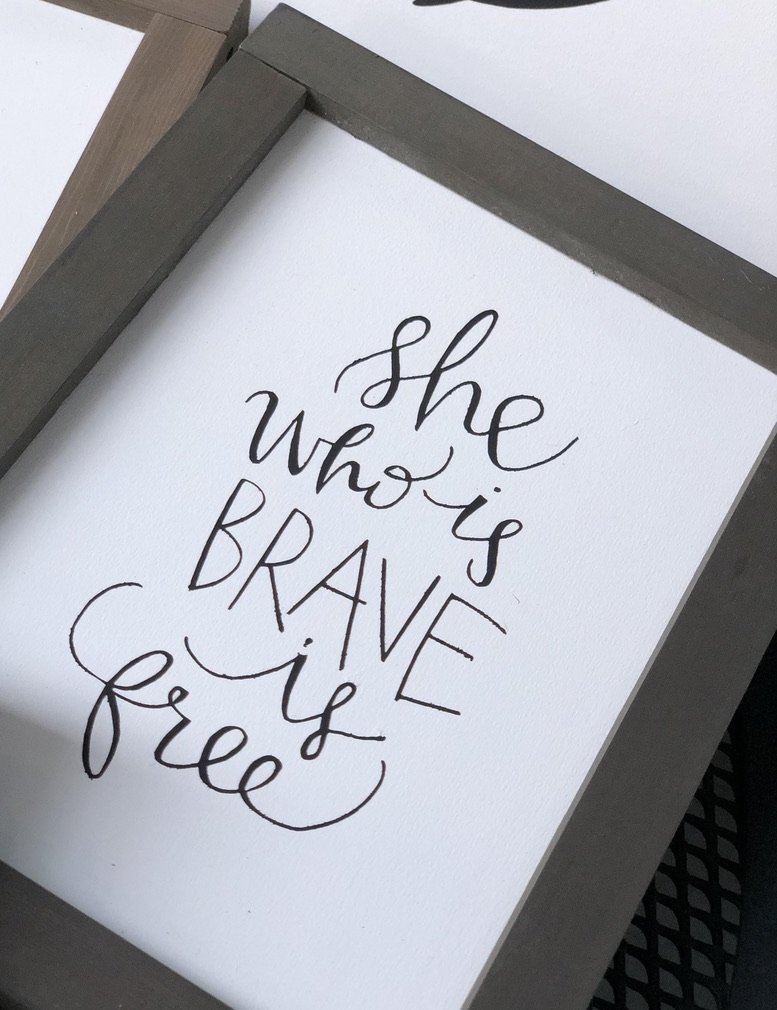 she
who is
BRAVE
is
free